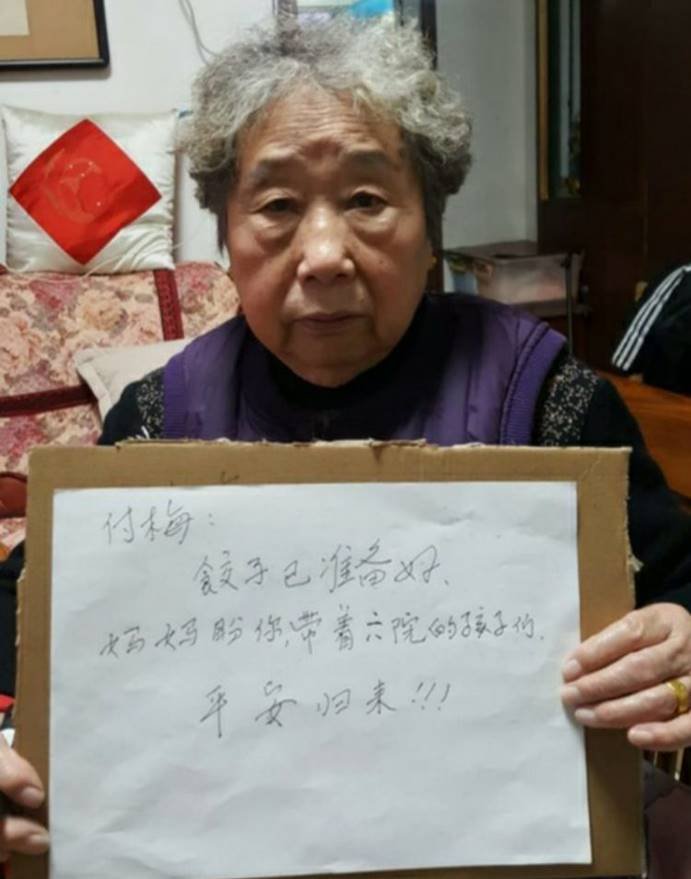 付梅：
餃子已准备好、
妈妈盼你,带着六院的孩子们、
平安归来!!!